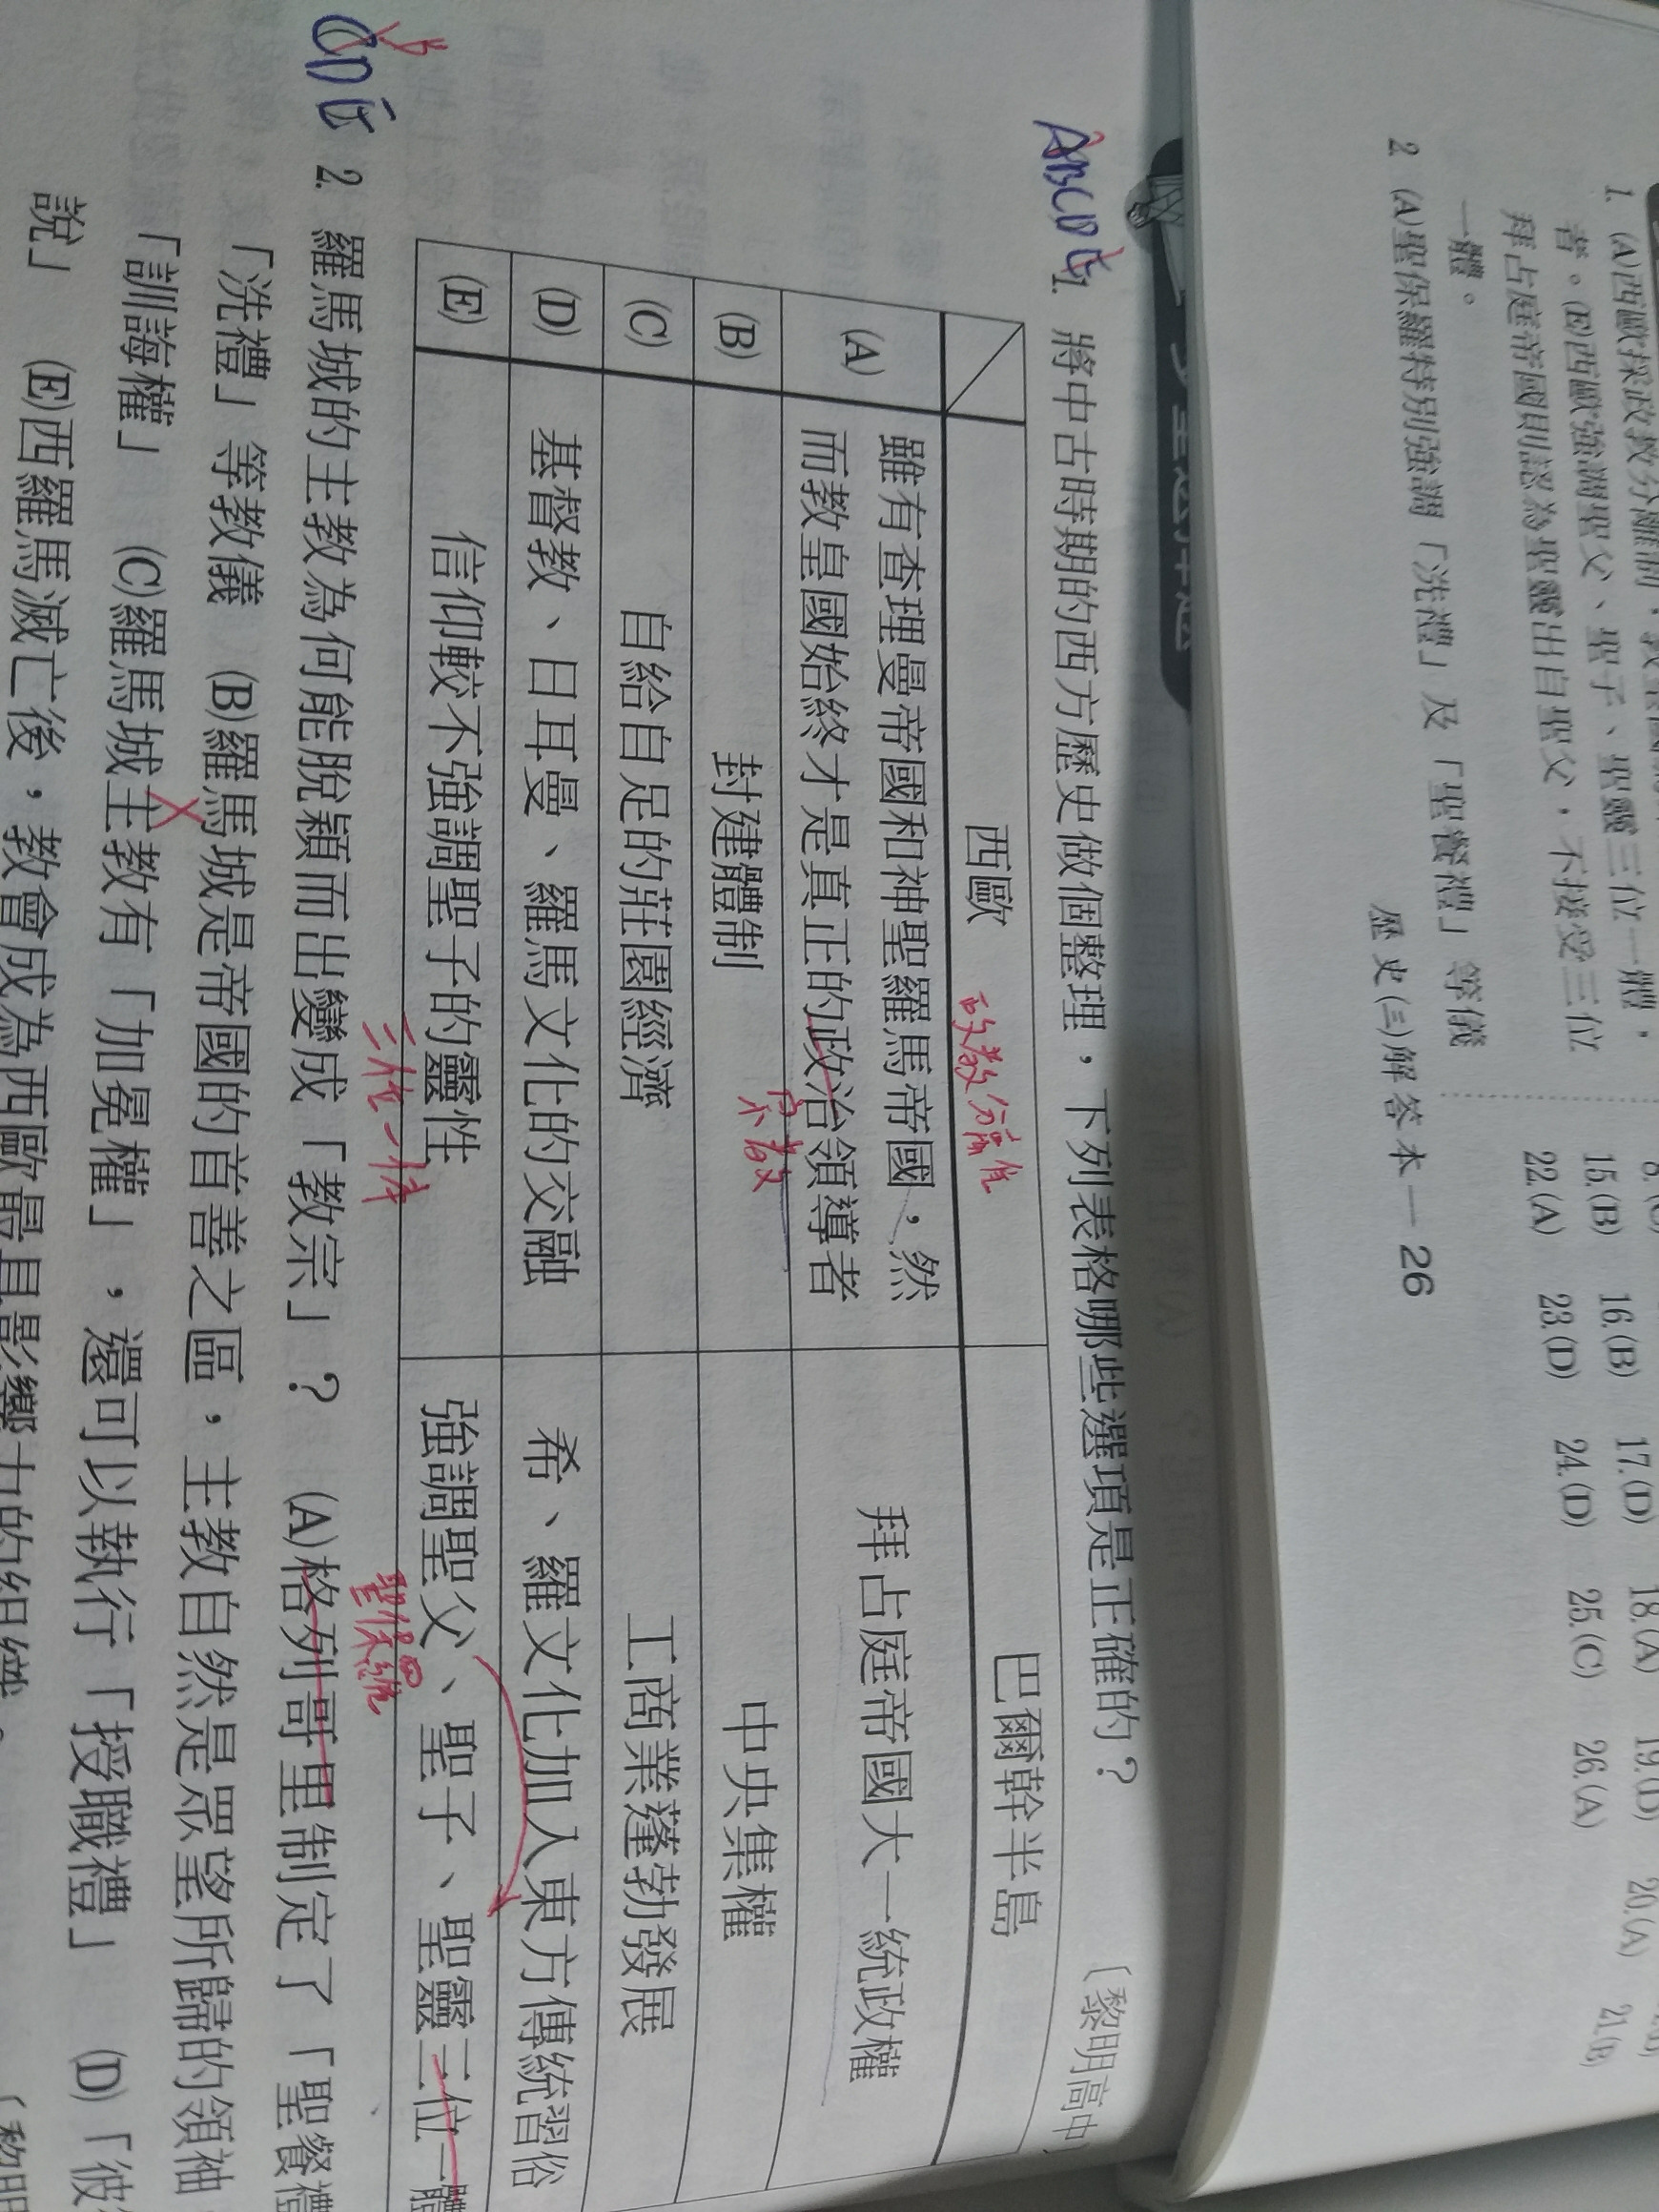 1. (A)西歐採政教分離制,教皇
者。(E)西歐強調聖父、聖子、聖靈三位一體,
拜占庭帝國則認為聖靈出自聖父,不接受三位
一體。
2. (A)聖保羅特別強調「洗禮」及「聖餐禮」等儀
歷史(三)解答本—26
15.(B) 16.(B) 17.(D) 18.(A) 19.(D) 20.(A) 21.(B)
22.(A) 23.(D) 24.(D) 25.(C) 26.(A)
ABCDE
1. 將中古時期的西方歷史做個整理,下列表格哪些選項是正確的? 〔黎明高中
西歐 政教分離 巴爾幹半島
(A) 雖有查理曼帝國和神聖羅馬帝國,然而教皇國始終才是真正的政治領導者
宗教
拜占庭帝國大一統政權
(B) 封建體制 中央集權
(C) 自給自足的莊園經濟 工商業蓬勃發展
(D) 基督教、日耳曼、羅馬文化的交融 希、羅文化加入東方傳統習俗
(E) 信仰較不強調聖子的靈性 強調聖父、聖子、聖靈三位一體
三位一体
聖保羅
B
CDE
2. 羅馬城的主教為何能脫穎而出變成「教宗」? (A)格列哥里制定了「聖餐禮
「洗禮」等教儀 (B)羅馬城是帝國的首善之區,主教自然是眾望所歸的領袖
「訓誨權」 (C)羅馬城主教有「加冕權」,還可以執行「授職禮」 (D)「彼
說」 (E)西羅馬滅亡後,教會成為西歐最具影響力的組織。